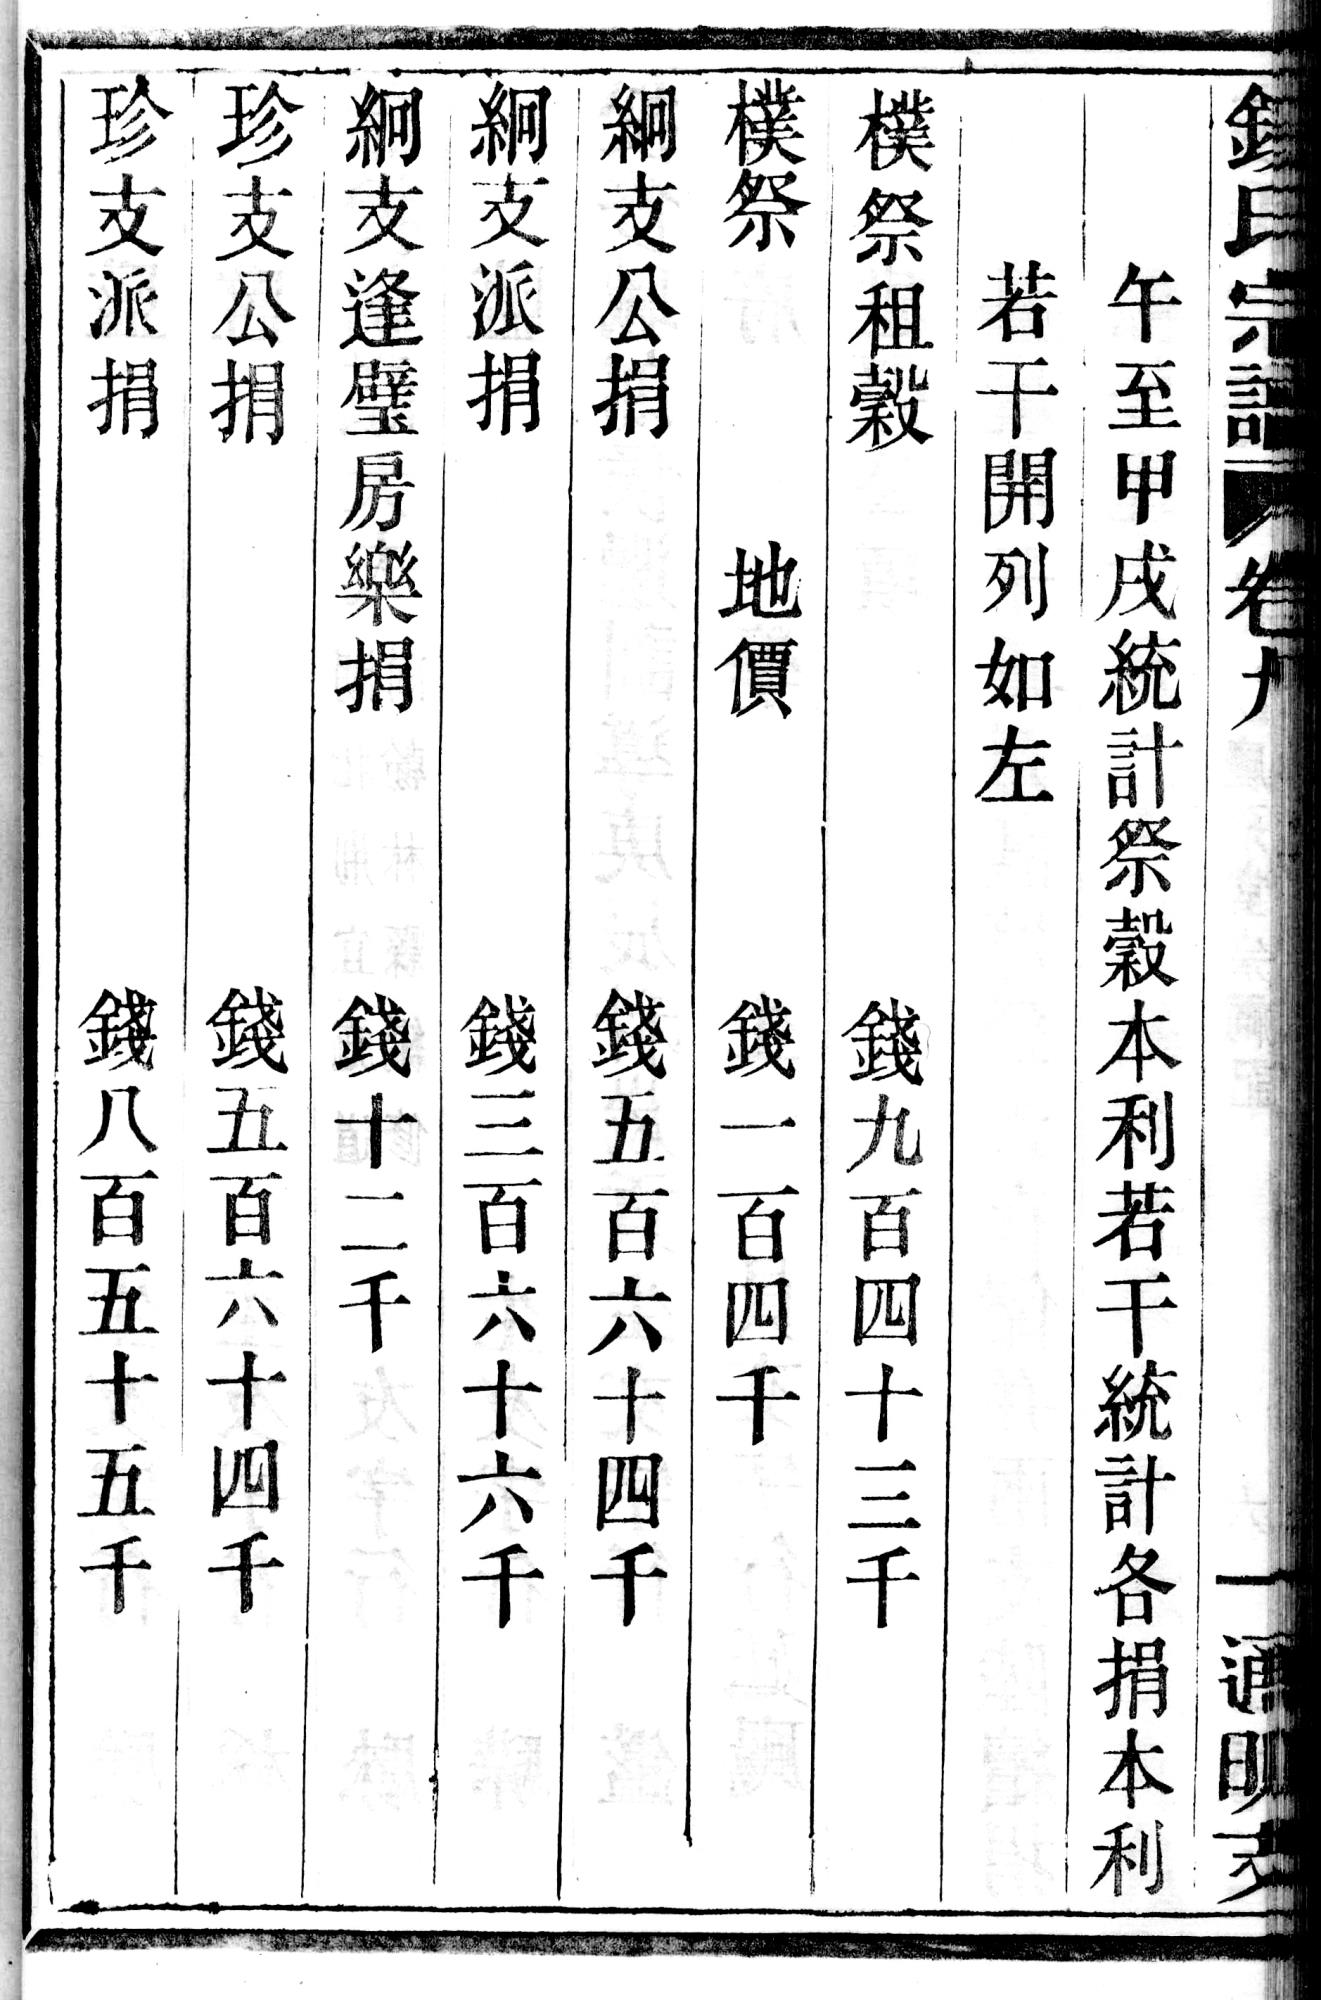 氏宗譜 卷九 一 通明支
午至甲戌統計祭穀本利若干統計各捐本利
若干開列如左
樸祭租穀 錢九百四十三千
樸祭 地價 錢一百四千
絅支公捐 錢五百六十四千
絅支派捐 錢三百六十六千
絅支逢璧房樂捐 錢十二千
珍支公捐 錢五百六十四千
珍支派捐 錢八百五十五千